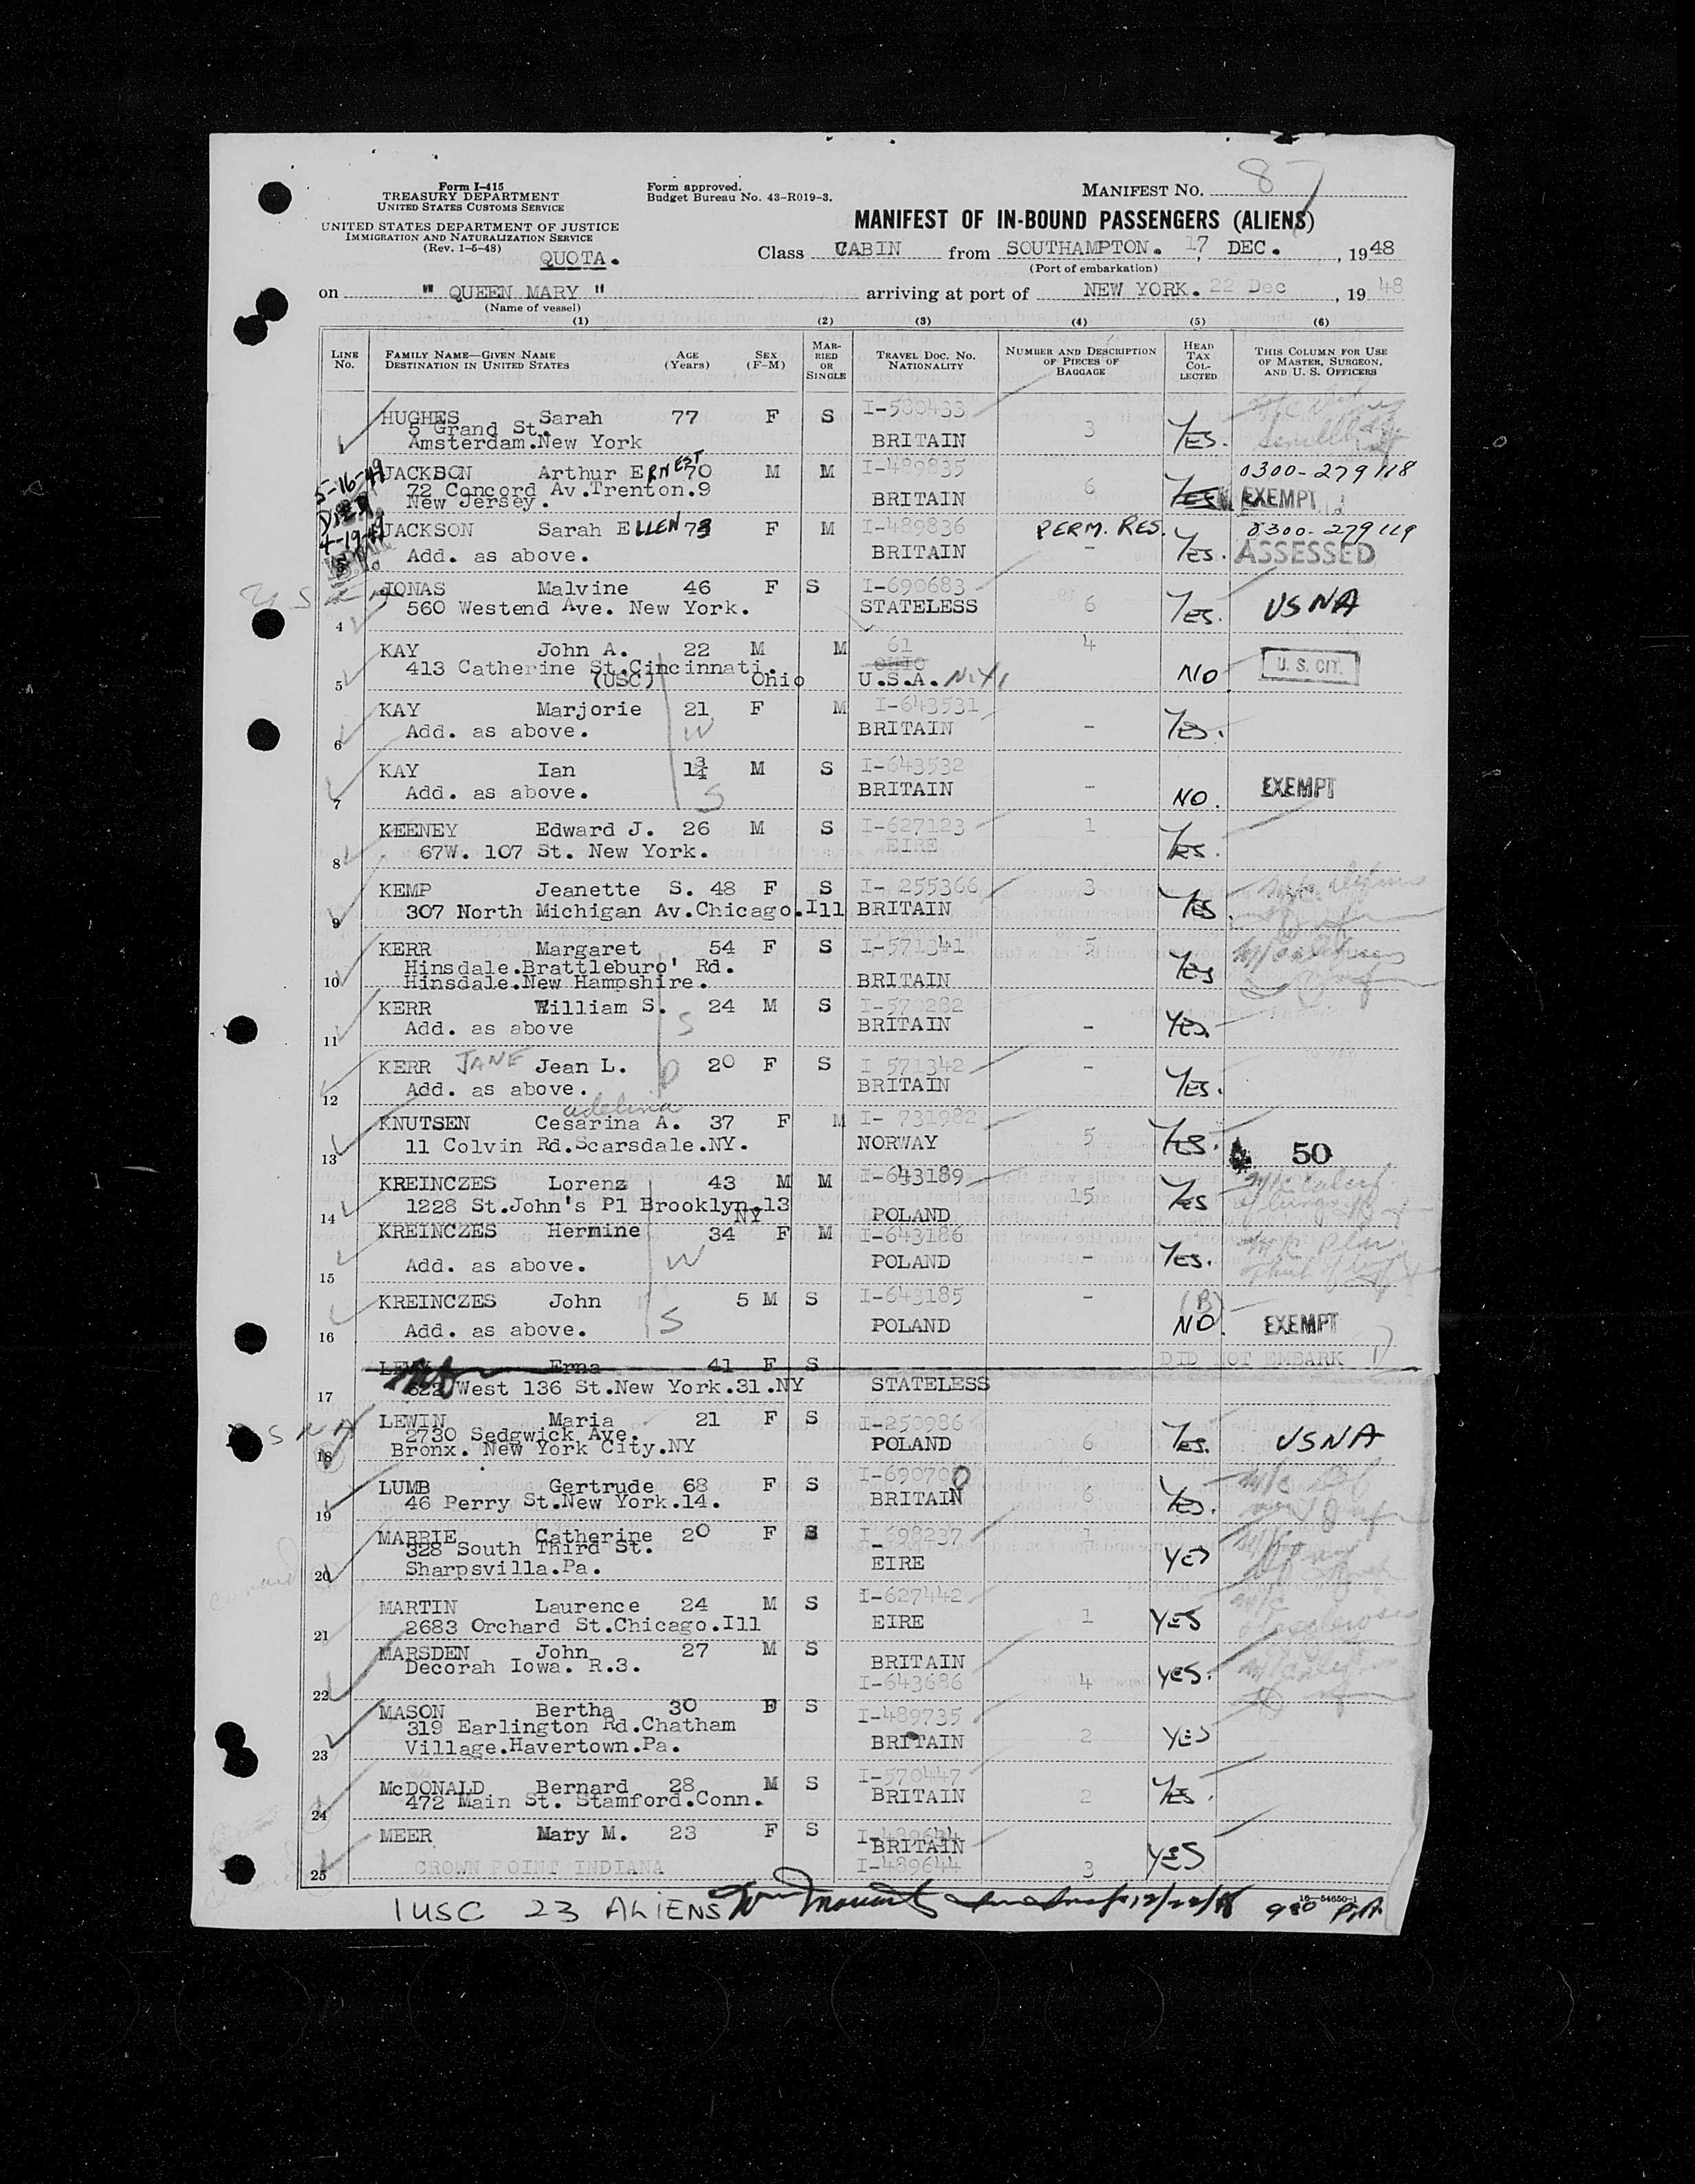 Form I-415
TREASURY DEPARTMENT
UNITED STATES CUSTOMS SERVICE
UNITED STATES DEPARTMENT OF JUSTICE
IMMIGRATION AND NATURALIZATION SERVICE
(Rev. 1-6-48)
QUOTA.
Form approved.
Budget Bureau No. 43-R019-3.
MANIFEST NO. 87
MANIFEST OF IN-BOUND PASSENGERS (ALIENS)
Class CABIN from SOUTHAMPTON. 17, DEC. , 1948
(Port of embarkation)
on " QUEEN MARY " arriving at port of NEW YORK. 22 Dec , 19 48
(Name of vessel)
(1) (2) (3) (4) (5) (6)
LINE NO. FAMILY NAME—GIVEN NAME DESTINATION IN UNITED STATES AGE (Years) SEX (F-M) MARRIED OR SINGLE TRAVEL DOC. NO. NATIONALITY NUMBER AND DESCRIPTION OF PIECES OF BAGGAGE HEAD TAX COLLECTED THIS COLUMN FOR USE OF MASTER, SURGEON, AND U. S. OFFICERS
HUGHES Sarah 77 F S I-580433
5 Grand St.
Amsterdam.New York BRITAIN 3 YES.
5-16-49 JACKSON Arthur ERNEST 70 M M I-489835 0300-279118
72 Concord Av.Trenton.9 6
New Jersey. BRITAIN YES EXEMPT
4-19-49 JACKSON Sarah ELLEN 73 F M I-489836 PERM. RES. 0300-279119
Add. as above. BRITAIN - YES. ASSESSED
JONAS Malvine 46 F S I-690683
560 Westend Ave. New York. STATELESS 6 YES. USNA
4
KAY John A. 22 M M 61 4
413 Catherine St.Cincinnati. OHIO U. S. CIT.
5 (USC) Ohio U.S.A. NO
KAY Marjorie 21 F M I-643531
6 Add. as above. W BRITAIN - YES.
KAY Ian 1¾ M S I-643532
7 Add. as above. S BRITAIN - NO. EXEMPT
KEENEY Edward J. 26 M S I-627123 1
8 67W. 107 St. New York. EIRE YES.
KEMP Jeanette S. 48 F S I- 255366 3
9 307 North Michigan Av.Chicago.Ill BRITAIN YES.
KERR Margaret 54 F S I-571341 5
Hinsdale.Brattleburo' Rd.
10 Hinsdale.New Hampshire. BRITAIN YES
KERR William S. 24 M S I-570282
11 Add. as above S BRITAIN - YES.
KERR JANE Jean L. 20 F S I 571342 -
12 Add. as above. D BRITAIN YES.
adelina
KNUTSEN Cesarina A. 37 F M I- 731982
13 11 Colvin Rd.Scarsdale.NY. NORWAY 5 YES. 50
KREINCZES Lorenz 43 M M I-643189
1228 St.John's Pl Brooklyn.13 15 YES
14 NY POLAND
KREINCZES Hermine 34 F M I-643186
15 Add. as above. W POLAND - YES.
KREINCZES John 5 M S I-643185 - (B)
16 Add. as above. S POLAND NO. EXEMPT
Erna 41 F S DID NOT EMBARK
17 622 West 136 St.New York.31.NY STATELESS
USNA LEWIN Maria 21 F S I-250986
2730 Sedgwick Ave.
18 Bronx. New York City.NY POLAND 6 YES. USNA
LUMB Gertrude 68 F S I-690700
19 46 Perry St.New York.14. BRITAIN 6 YES.
MARRIE Catherine 20 F S I-698237 1
328 South Third St.
20 Sharpsvilla.Pa. EIRE YES
MARTIN Laurence 24 M S I-627442
21 2683 Orchard St.Chicago.Ill EIRE 1 YES
MARSDEN John 27 M S BRITAIN
Decorah Iowa. R.3.
22 I-643686 4 YES.
MASON Bertha 30 F S I-489735
319 Earlington Rd.Chatham
23 Village.Havertown.Pa. BRITAIN 2 YES
McDONALD Bernard 28 M S I-570447
24 472 Main St. Stamford.Conn. BRITAIN 2 YES.
MEER Mary M. 23 F S BRITAIN
25 CROWN POINT INDIANA I-489644 3 YES
16-54650-1
1 USC 23 ALIENS 12/22/48 930 PM